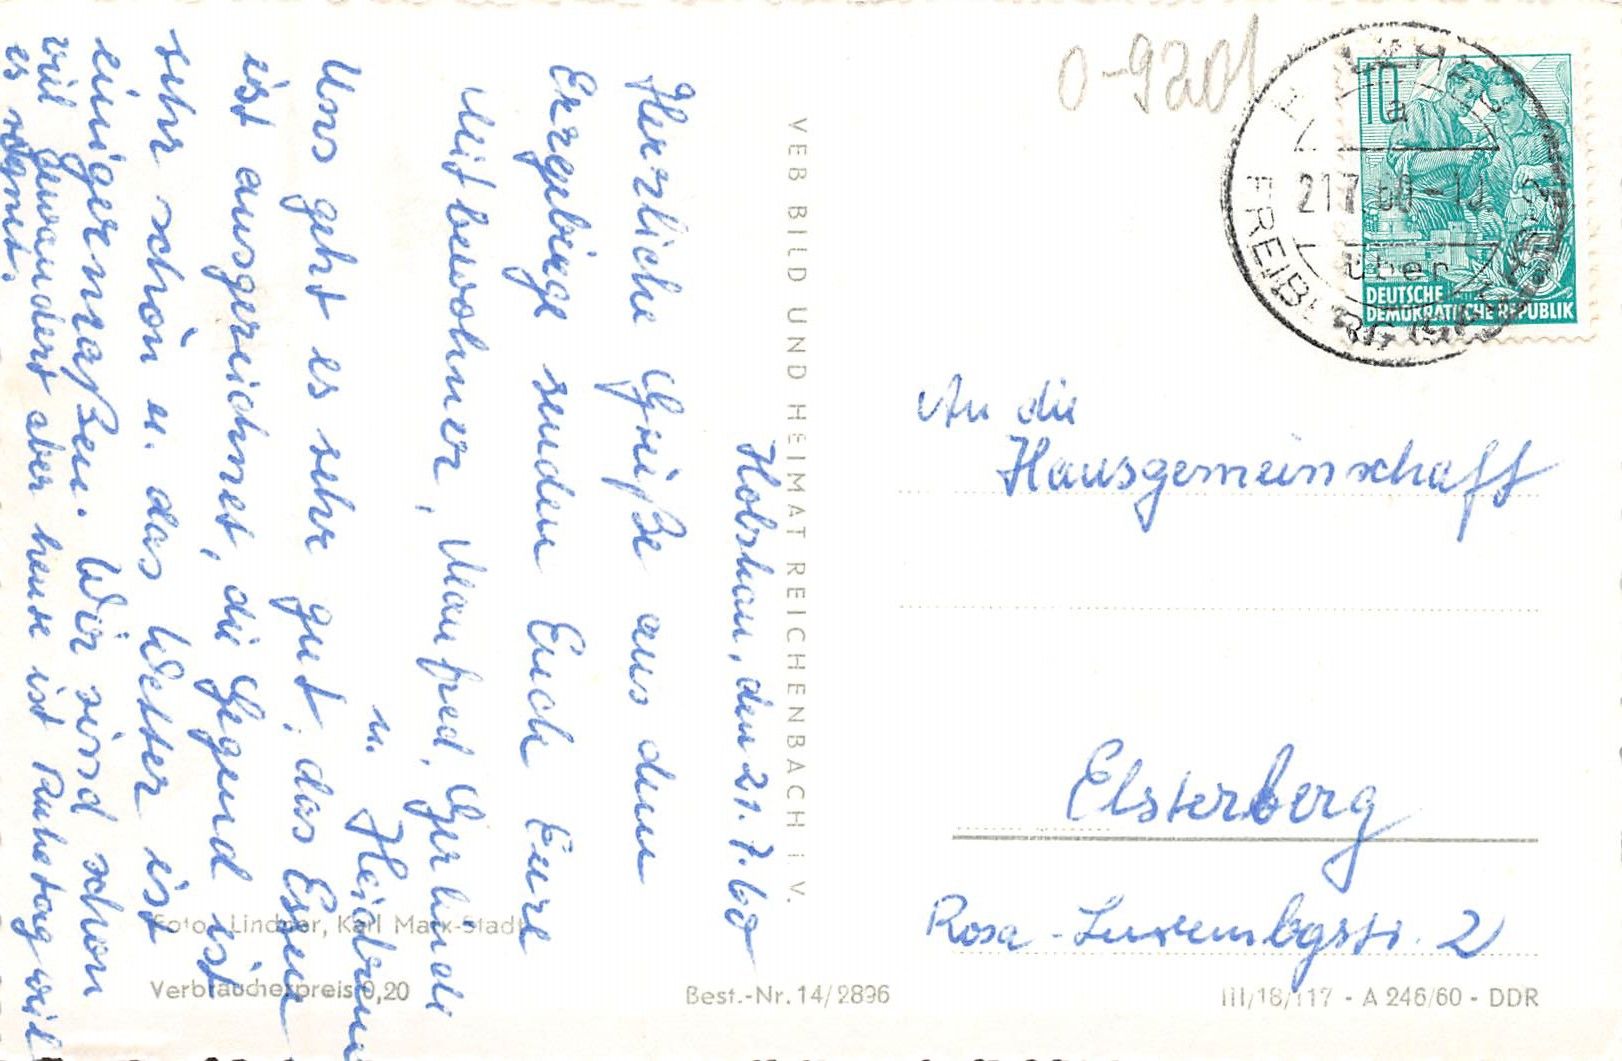 Holzhau, den 21.7.60
Herzliche Grüße aus dem
Erzgebirge senden Euch Eure
Mitbewohner, Manfred, Gerlinde
u. Heidrun
Uns geht es sehr gut, das Essen
ist ausgezeichnet, die Gegend ist
sehr schön u. das Wetter ist
einigermaßen. Wir sind schon
viel gewandert aber heute ist Ruhetag weil
es regnet.
VEB BILD UND HEIMAT REICHENBACH I. V.
Foto: Lindner, Karl Marx-Stadt
Verbraucherpreis 0,20
Best.-Nr. 14/2896
0-9201
10
DEUTSCHE
DEMOKRATISCHE REPUBLIK
a
21.7.60
über
FREIBERG
An die
Hausgemeinschaft
Elsterberg
Rosa-Luxembgstr. 2
III/18/117 - A 246/60 - DDR